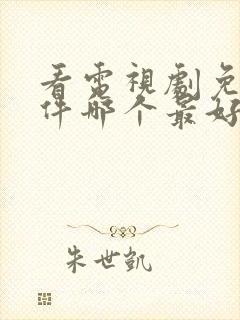 看電視劇免
件哪个最好
朱世凯